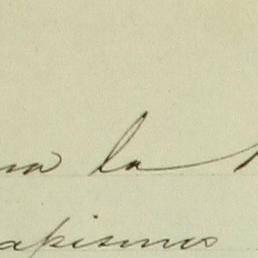 na la
apismos